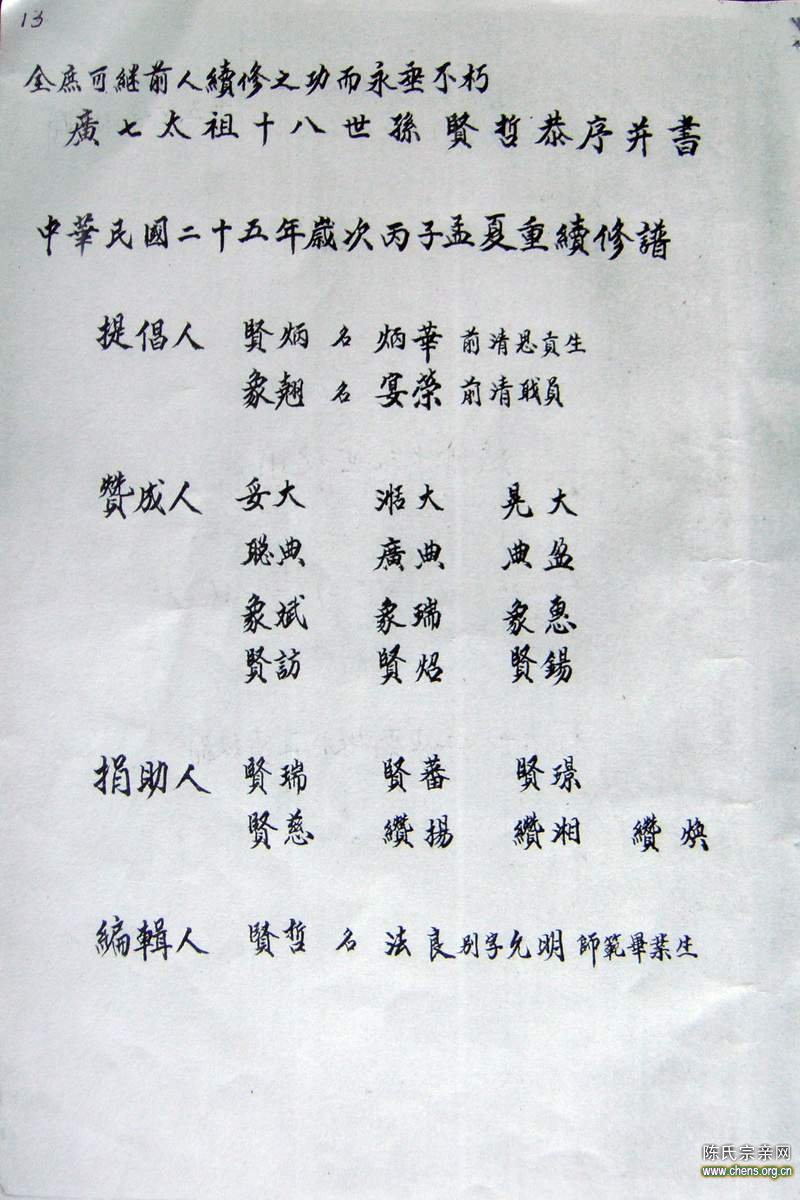 13
全庶可継前人續修之功而永垂不朽
廣七太祖十八世孫賢哲恭序并書
中華民國二十五年歲次丙子孟夏重續修譜
提倡人 賢炳 名 炳華 前清恩貢生
象翹 名 宴榮 前清戝員
贊成人 妥大 湉大 晃大
聡典 廣典 典盈
象斌 象瑞 象惠
賢訪 賢炤 賢錫
捐助人 賢瑞 賢蕃 賢璟
賢慈 纘揚 纘湘 纘焕
編輯人 賢哲 名 法良 别字允明 師範畢業生
陈氏宗亲网
www.chens.org.cn